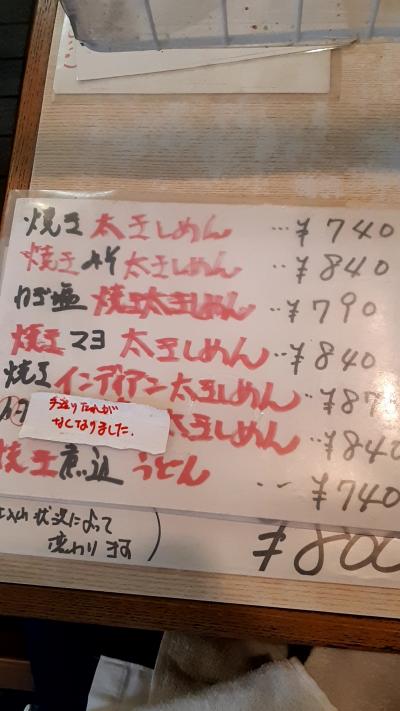 焼玉 太玉しめん …¥740
焼玉 太玉しめん …¥840
ねぎ塩 焼玉太玉しめん …¥790
焼玉 マヨ 太玉しめん …¥840
焼玉 インディアン太玉しめん …¥87
手造りたれが
なくなりました.
太玉しめん …¥840
焼玉煮込 うどん …¥740
状況によって
変わります ) ¥800